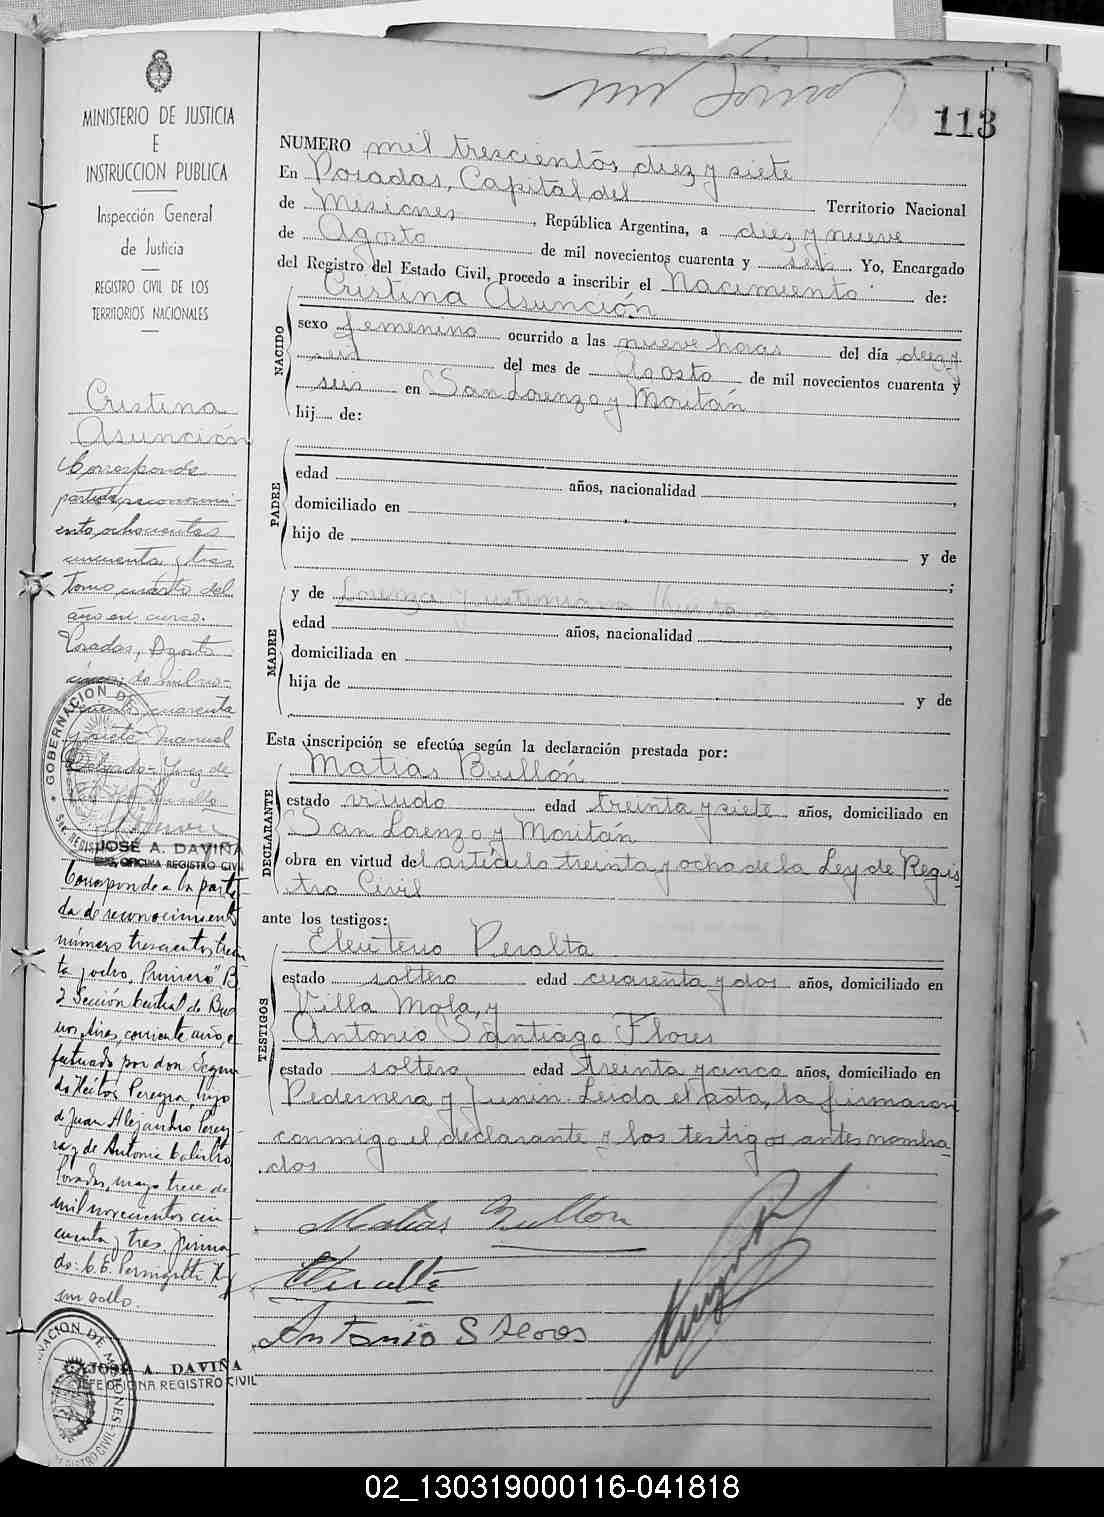 113
MINISTERIO DE JUSTICIA
E
INSTRUCCION PUBLICA
Inspección General
de Justicia
REGISTRO CIVIL DE LOS
TERRITORIOS NACIONALES
NUMERO mil trescientos diez y siete
En Posadas, Capital del
Territorio Nacional
de Misiones, República Argentina, a diez y nueve
de Agosto de mil novecientos cuarenta y seis Yo, Encargado
del Registro del Estado Civil, procedo a inscribir el Nacimiento de:
NACIDO
Cristina Asunción
sexo femenino ocurrido a las nueve horas del día diez y
seis del mes de Agosto de mil novecientos cuarenta y
seis en San Lorenzo y Moritán
hij de:
PADRE
edad años, nacionalidad
domiciliado en
hijo de
y de
;
MADRE
y de Lorenza Justiniana
edad años, nacionalidad
domiciliada en
hija de
y de
Esta inscripción se efectúa según la declaración prestada por:
DECLARANTE
Matias Buillón
estado viudo edad treinta y siete años, domiciliado en
San Lorenzo y Moritán
obra en virtud del artículo treinta y ocho de la Ley de Regis-
tro Civil
ante los testigos:
TESTIGOS
Eleuterio Peralta
estado soltero edad cuarenta y dos años, domiciliado en
Villa Mola, y
Antonio Santiago Flores
estado soltero edad treinta y cinco años, domiciliado en
Pedernera y Junin. Leida el acta, la firmaron
conmigo el declarante y los testigos antes nombra-
dos
Matias Buillon
Peralta
Antonio S Flores
Cristina
Asunción
Corresponde
partida reconocimi-
ento ochocientos
cincuenta y tres
Tomo cuarto del
año en curso.
Posadas, Agosto
de mil no-
cuarenta
y siete Manuel
Delgado - Juez de
GOBERNACION DE
JOSÉ A. DAVIÑA
OFICINA REGISTRO CIVIL
Corresponde a la parti
da de reconocimiento
número trescientos trein
ta y ocho, Primero "B"
2 Sección Central de Bue
nos Aires, corriente año, e
fectuado por don Segun
do Héctor Pereyra, hijo
de Juan Alejandro Perey
ra y de Antonia
Posadas, mayo trece de
mil novecientos cin
cuenta y tres. firma
do: C. E.
un sello.
JOSÉ A. DAVIÑA
JEFE OFICINA REGISTRO CIVIL
02_130319000116-041818